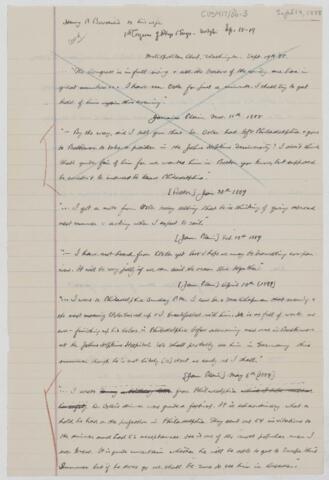 CUS417/86.3
Sept 19, 1888
Henry P. Bowditch to his wife
1st Congress of Phys & Surgs. Washgtn Sep. 18-19
Metropolitan Club, Washington, Sept. 19th 88.
"The Congress is in full swing & all the Doctors of the country are here in
great numbers... I have seen Osler for just a minute. I shall try to get
hold of him again this evening."
Jamaica Plain Nov. 11th 1888
"... By the way, did I tell you that Dr. Osler had left Philadelphia & gone
to Baltimore to take a position in the Johns Hopkins University? I don't think
that's quite fair of him for we wanted him in Boston you know, but supposed
he couldn't be induced to leave Philadelphia."
[Boston] Jan 30th 1889
"... I got a note from Osler today saying that he is thinking of going abroad
next summer & asking when I expect to sail."
[Jam. Plain] Feb 10th 1889
"... I have not heard from Osler yet but I hope we may be
It will be very jolly if we can sail the ocean blue together."
[Jam Plain] April 10th (1889)
"... I went to Philadelphia Sunday P.M. I saw
the next morning & breakfasted with him. He is as full of work as
ever - finishing up his labors in Philadelphia before assuming new ones in Baltimore
at the Johns Hopkins Hospital. We shall probably see him in Germany this
summer though he is not likely [to] start as early as I shall."
[Jam Plain] May 6th (1889)
"... I wrote from Philadelphia
Dr. Osler's dinner was quite a festival. It is extraordinary what a
hold he had on the profession in Philadelphia. They sent out 54 invitations to
the dinner and had 52 acceptances. He is one of the most popular men I
ever knew. It is quite uncertain whether he will be able to get to Europe this
Summer but if he does go we shall be sure to see him in